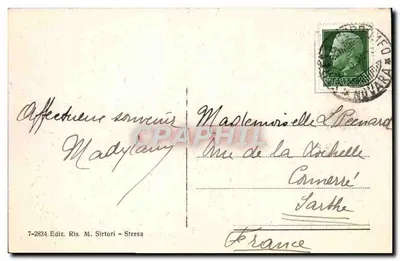 Affectueux souvenir
Madylamy
Mademoiselle L Besnard
Rue de la Rochelle
Connerré
Sarthe
France
NOVARA
7-2834 Ediz. Ris. M. Sirtori - Stresa
CPArama.com